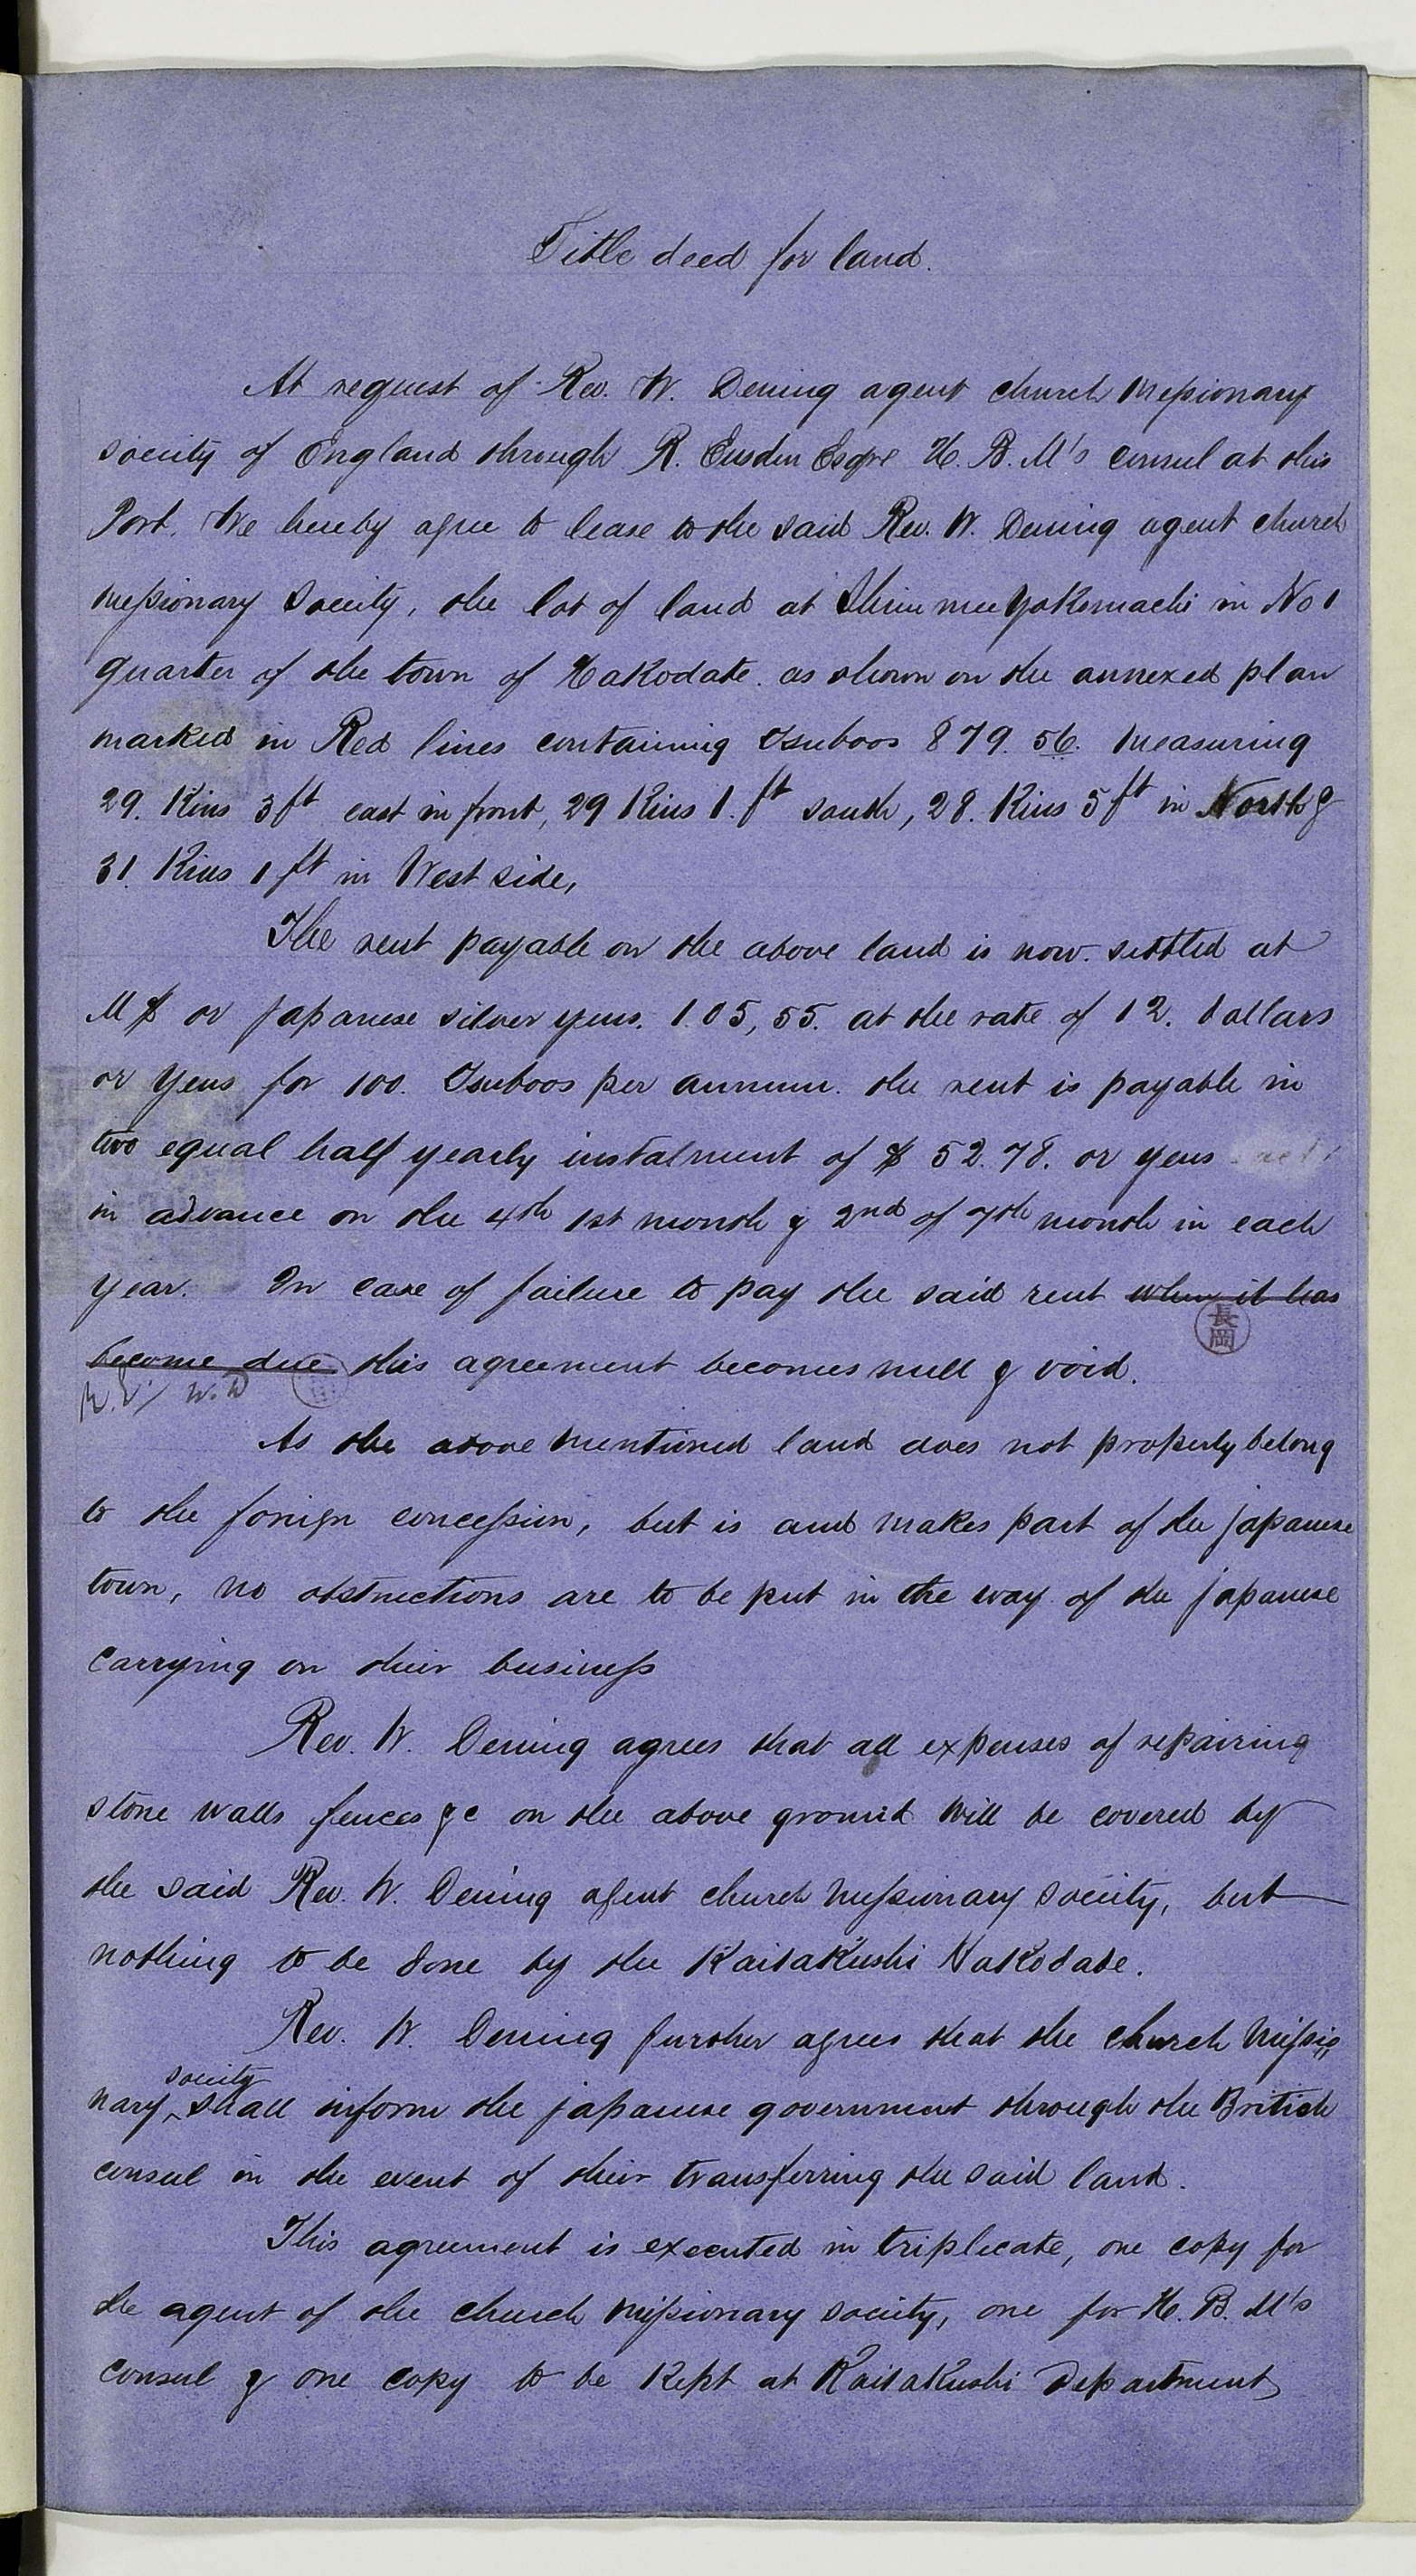 Title deed for land.
At request of Rev. W. Dening agent church missionary
society of England through R. Eusden Esqre H. B. M's consul at this
Port. We hereby agree to lease to the said Rev. W. Dening agent church
missionary Society, the lot of land at in No 1
quarter of the town of Hakodate. as shown on the annexed plan
marked in Red lines containing tsuboos 879. 56. measuring
29. Kins 3 ft east in front, 29 Kins 1. ft south, 28. Kins 5 ft in North &
31. Kins 1 ft in West side,
The rent payable on the above land is now. settled at
M $ or japanese silver yens. 105,55. at the rate of 12. dollars
or yens for 100. Tsuboos per annum. the rent is payable in
two equal half yearly instalment of $ 52.78. or yens
in advance on the 4th 1st month & 2nd of 7th month in each
year. In case of failure to pay the said rent when it has
長岡
become due this agreement becomes null & void.
R. E. W. D
As the above mentioned land does not properly belong
to the foreign concession, but is and makes part of the japanese
town, no obstructions are to be put in the way of the japanese
carrying on their business
Rev. W. Dening agrees that all expenses of repairing
stone walls fences &c on the above ground will be covered by
the said Rev. W. Dening agent church missionary society, but
nothing to be done by the Kaitakushi Hakodate.
Rev. W. Dening further agrees that the church missio
society
nary shall inform the japanese government through the British
consul in the event of their transferring the said land.
This agreement is executed in triplicate, one copy for
the agent of the church missionary society, one for H. B. M's
consul & one copy to be Kept at Kaitakushi Department